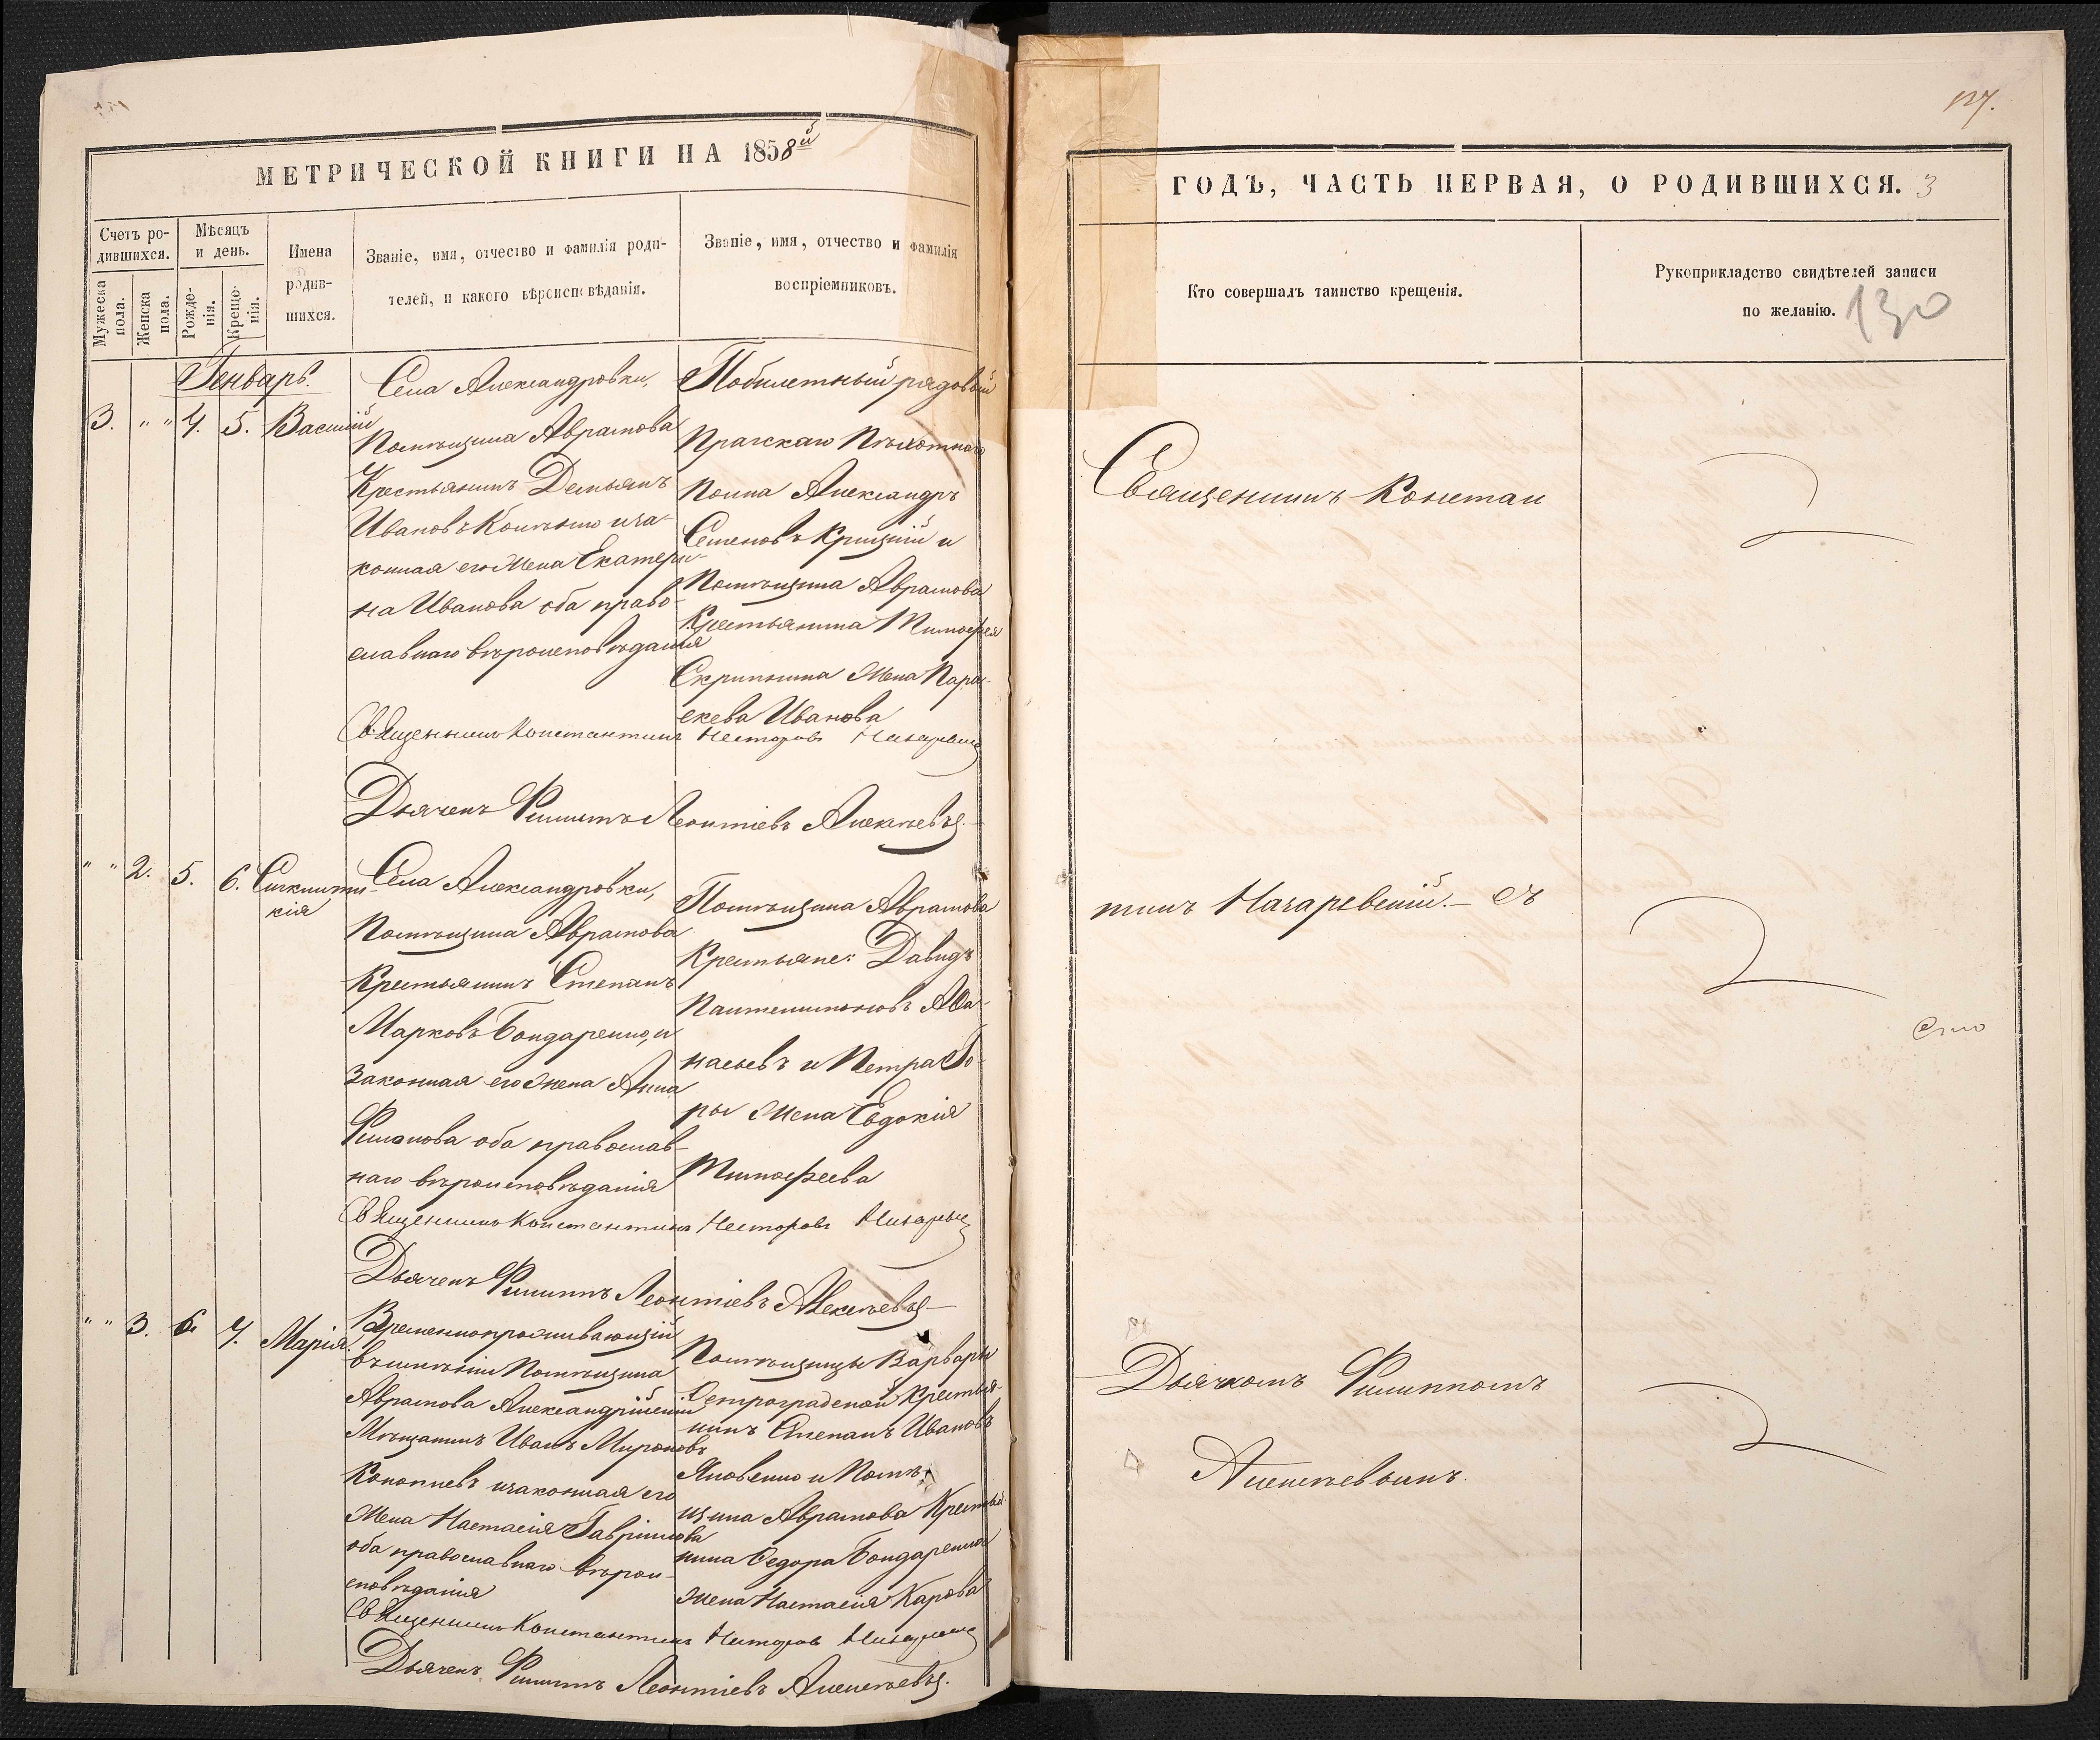 МЕТРИЧЕСКОЙ КНИГИ НА 1858й
Счетъ ро-
дившихся.
Мѣсяцъ
и день.
Имена
родив-
шихся.
Званіе, имя, отчество и фамилія роди-
телей, и какого вѣроисповѣданія.
Званіе, имя, отчество и фамилія
воспріемниковъ.
Мужеска
пола.
Женска
пола.
Рожде-
нія.
Креще-
нія.
Генварь.
3. " " 4. 5. Василій
Села Александровки,
Помѣщика Аврамова
Крестьянинъ Демьянъ
Ивановъ и за-
конная его жена Екатери-
на Иванова оба право-
славнаго вѣроисповѣданія
Побилетный рядовый
Пражскаго Пѣхотнаго
Полка Александръ
Семеновъ Крицкій и
Помѣщика Аврамова
Крестьянина Тимофея
Скрипкина жена Парас-
кева Иванова
Священникъ Константинъ Несторовъ
Дьячекъ Филиппъ Леонтіевъ Алексѣевъ.
" " 2. 5. 6. Сигклити-
кія
Села Александровки,
Помѣщика Аврамова
Крестьянинъ Степанъ
Марковъ Бондаренко, и
законная его жена Анна
оба православ-
наго вѣроисповѣданія
Помѣщика Аврамова
Крестьяне: Давидъ
Пантелимоновъ Аѳа-
насьевъ и Петра
ры жена Евдокія
Тимофеева
Священникъ Константинъ Несторовъ
Дьячекъ Филиппъ Леонтіевъ Алексѣевъ
" " 3. 6. 7. Марія
Временнопроживающій
въ имѣніи Помѣщика
Аврамова Александрійскій
Мѣщанинъ Иванъ Мироновъ
Коноплевъ и законная его
жена Настасія Гавріилова
оба православнаго вѣрои-
сповѣданія
Помѣщицы Варвары
Остроградской Крестья-
нинъ Степанъ Ивановъ
Яковенко и Помѣ-
щика Аврамова Крестья-
нина Ѳедора Бондаренка
жена Настасія Карпова
Священникъ Константинъ Несторовъ
Дьячекъ Филиппъ Леонтіевъ Алексѣевъ.
127.
ГОДЪ, ЧАСТЬ ПЕРВАЯ, О РОДИВШИХСЯ. 3
Кто совершалъ таинство крещенія.
Рукоприкладство свидѣтелей записи
по желанію.
130
Священникъ Констан
тинъ Назаревскій. – съ
Дьячкомъ Филиппомъ
Алексѣевымъ.